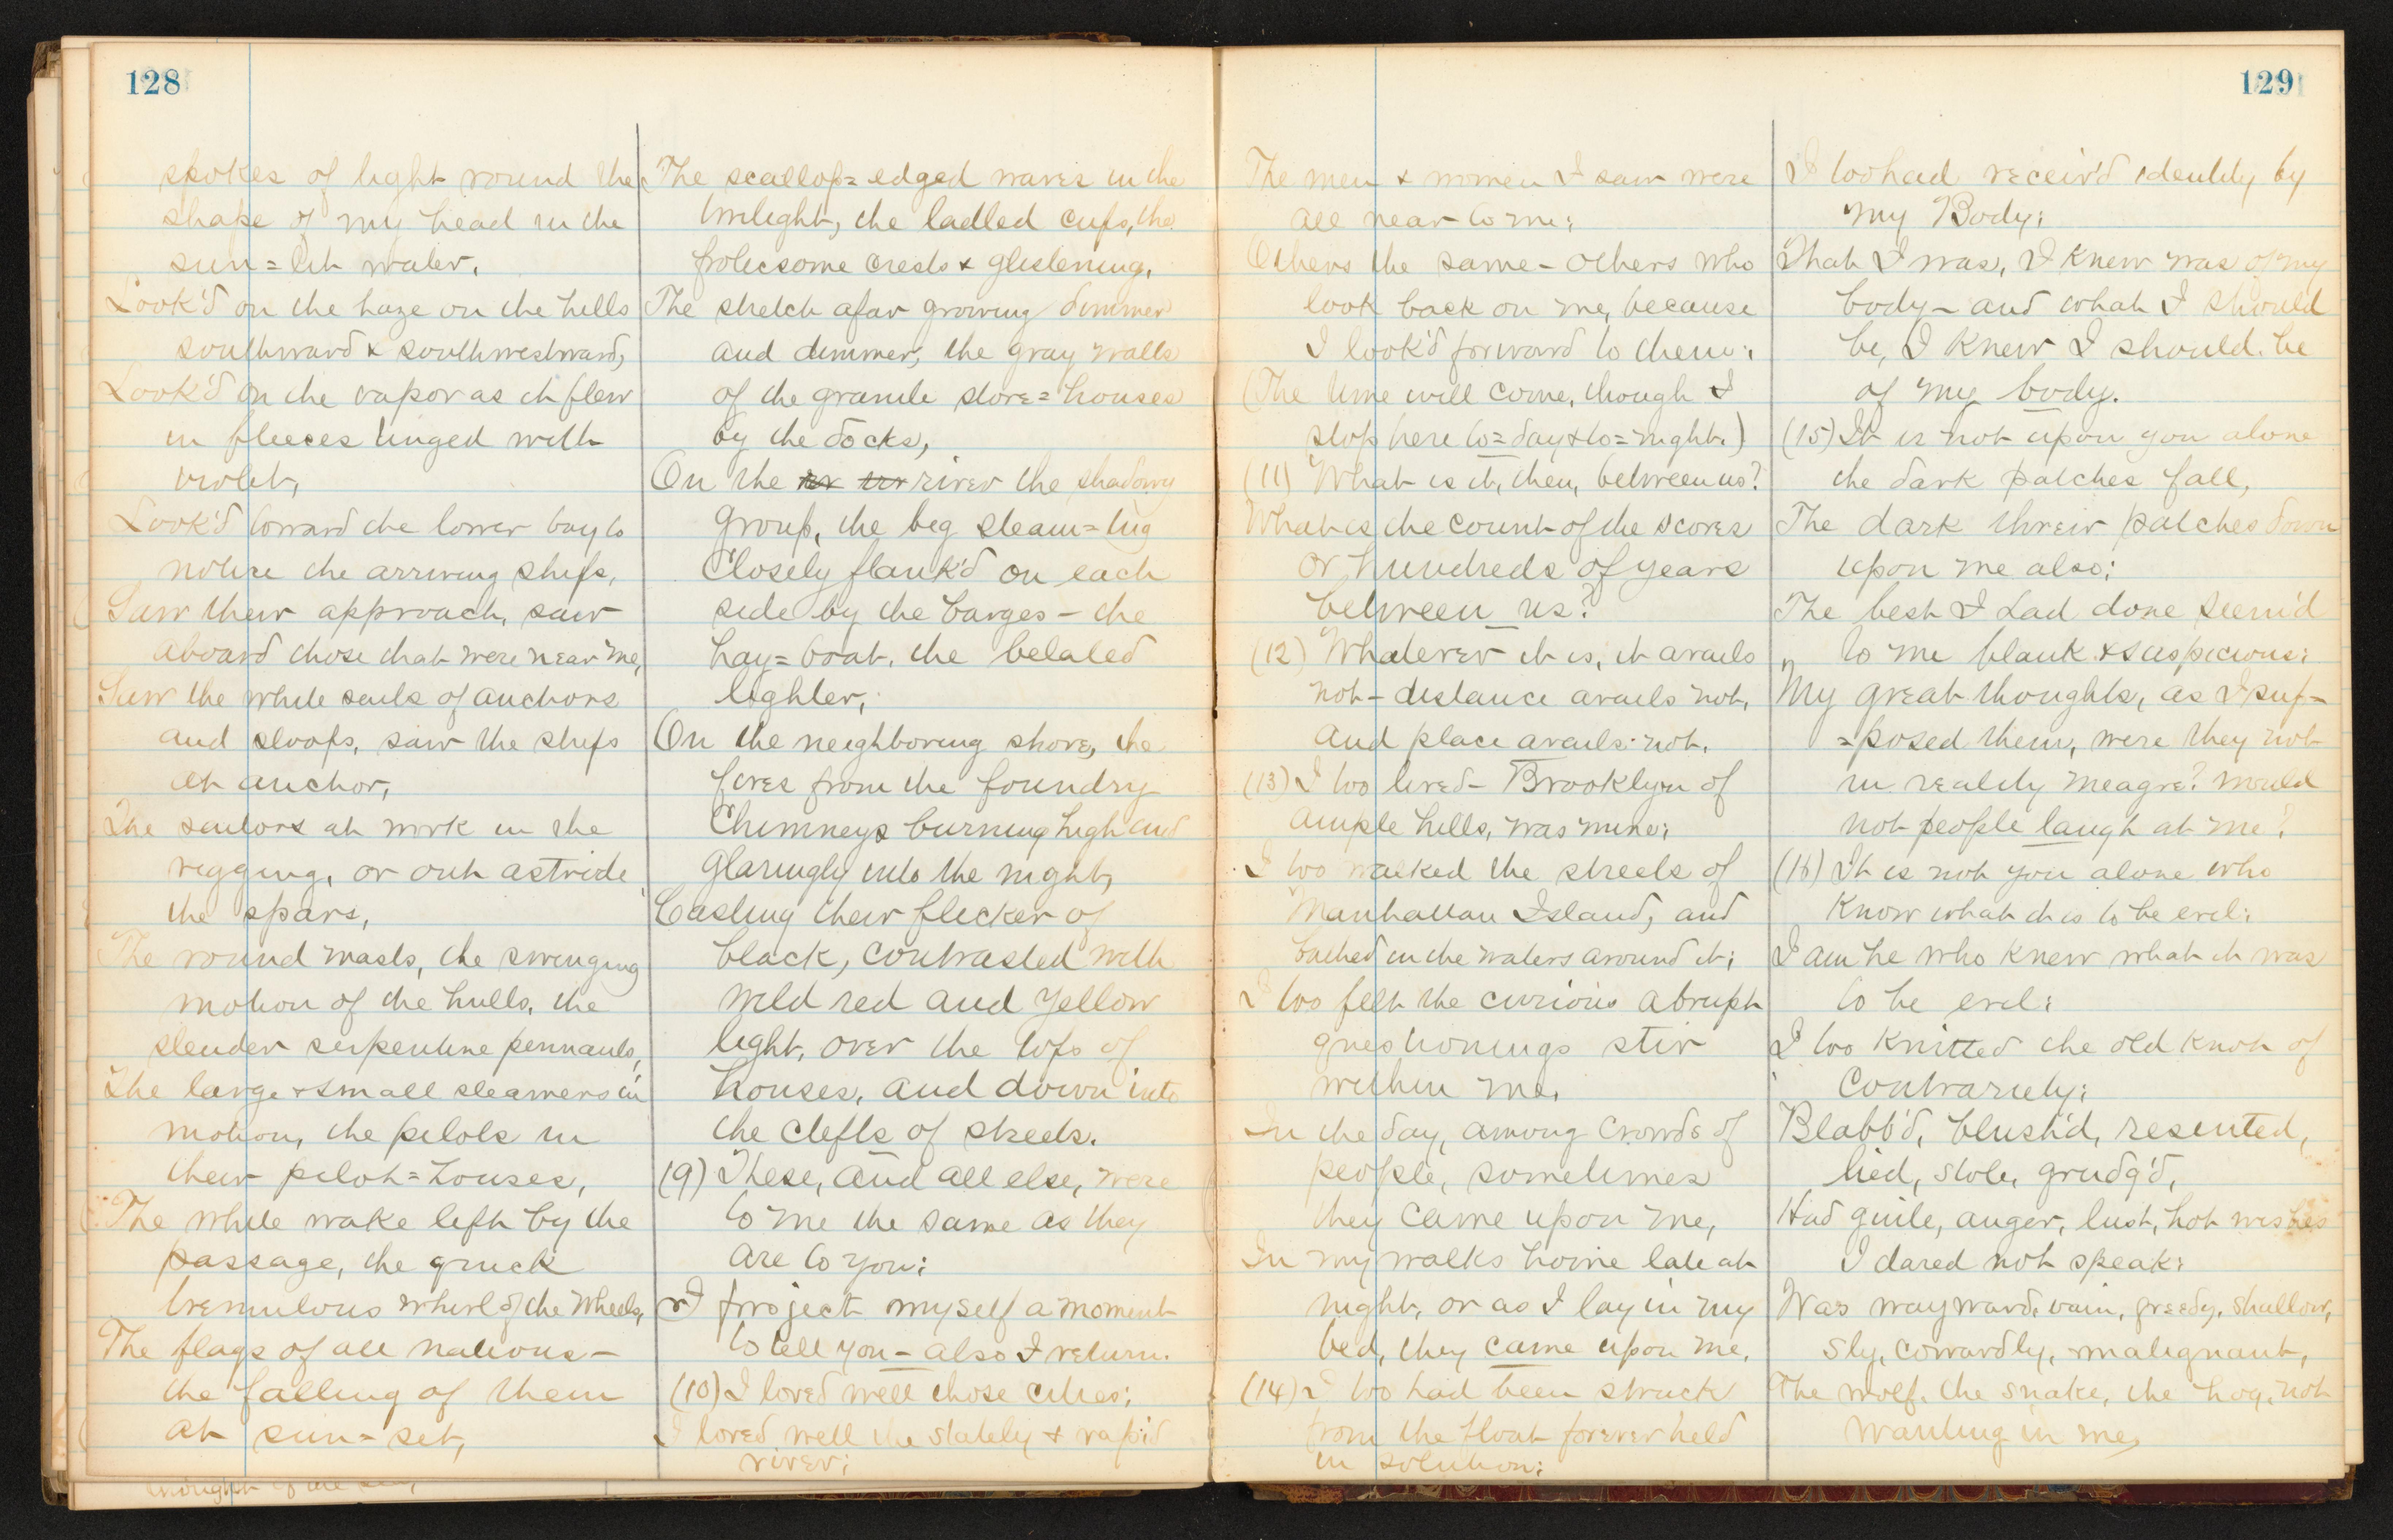 128
spokes of light round the
shape of my head in the
sun=lit water,
Look'd on the haze on the hills
southward & southwestward,
Look'd on the vapor as it flew
in fleeces tinged with
violet,
Look'd toward the lower bay to
notice the arriving ships,
Saw their approach, saw
aboard those that were near me,
Saw the white sails of anchors
and sloops, saw the ships
at anchor,
The sailors at work in the
rigging, or out astride
the spars,
The round masts, the swinging
motion of the hulls, the
slender serpentine pennants,
The large & small steamers in
motion, the pilots in
their pilot=houses,
The white wake left by the
passage, the quick
tremulous whirl of the wheels,
The flags of all nations—
the falling of them
at sun=set,
The scallop=edged waves in the
twilight, the ladled cups, the
frolicsome crests & glistening,
The stretch afar growing dimmer
and dimmer, the gray walls
of the granite store=houses
by the docks,
On the river the shadowy
group, the big steam=tug
closely flank'd on each
side by the barges — the
hay=boat, the belated
lighter;
On the neighboring shore, the
fires from the foundry
chimneys burning high and
glaringly into the night,
Casting their flicker of
black, contrasted with
wild red and yellow
light, over the tops of
houses, and down into
the clefts of streets.
(9) These, and all else, were
to me the same as they
are to you;
I project myself a moment
to tell you — also I return.
(10) I loved well those cities;
I loved well the stately & rapid
river;
129
The men & women I saw were
all near to me;
Others the same — others who
look back on me, because
I look'd forward to them;
(The time will come, though I
stop here to=day & to=night.)
(11) What is it, then, between us?
What is the count of the scores
or hundreds of years
between us?
(12) Whatever it is, it avails
not — distance avails not,
and place avails not.
(13) I too lived — Brooklyn of
ample hills, was mine;
I too walked the streets of
Manhattan Island, and
bathed in the waters around it;
I too felt the curious abrupt
questionings stir
within me,
In the day, among crowds of
people, sometimes
they came upon me,
In my walks home late at
night, or as I lay in my
bed, they came upon me.
(14) I too had been struck
from the float forever held
in solution;
I too had receiv'd identity by
my Body;
That I was, I knew was of my
body — and what I should
be, I knew I should be
of my body.
(15) It is not upon you alone
the dark patches fall,
The dark threw patches down
upon me also;
The best I had done seem'd
to me blank & suspicious;
My great thoughts, as I sup=
=posed them, were they not
in reality meagre? would
not people laugh at me?
(16) It is not you alone who
know what it is to be evil;
I am he who knew what it was
to be evil;
I too knitted the old knot of
contrariety;
Blabb'd, blush'd, resented,
lied, stole, grudg'd,
Had guile, anger, lust, hot wishes
I dared not speak;
Was wayward, vain, greedy, shallow,
sly, cowardly, malignant,
The wolf, the snake, the hog, not
wanting in me,